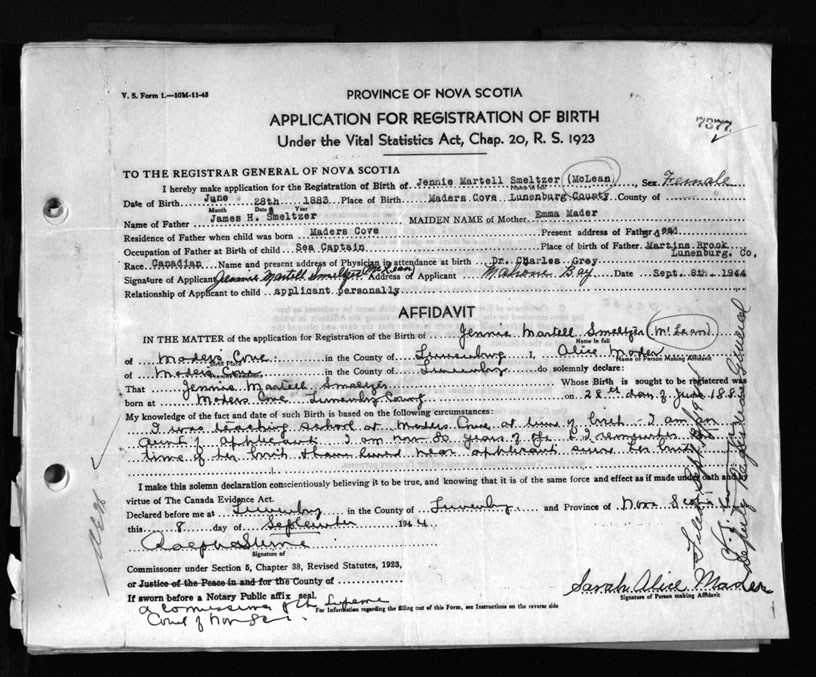 V. S. Form 1.—10M-11-45
PROVINCE OF NOVA SCOTIA
APPLICATION FOR REGISTRATION OF BIRTH
7377
Under the Vital Statistics Act, Chap. 20, R. S. 1923
TO THE REGISTRAR GENERAL OF NOVA SCOTIA
I hereby make application for the Registration of Birth of Jennie Martell Smeltzer (McLean), Sex Female
Name in full
Date of Birth June 28th 1883 Place of Birth Maders Cove Lunenburg County County of
Month Date Year
Name of Father James H. Smeltzer MAIDEN NAME of Mother Emma Mader
Residence of Father when child was born Maders Cove Present address of Father dead
Occupation of Father at Birth of child Sea Captain Place of birth of Father Martins Brook
Lunenburg, Co.
Race Canadian Name and present address of Physician in attendance at birth Dr. Charles Grey
Signature of Applicant Jennie Martell Smeltzer McLean Address of Applicant Mahone Bay Date Sept. 8th. 1944
Relationship of Applicant to child applicant personally
AFFIDAVIT
IN THE MATTER of the application for the Registration of Birth of Jennie Martell Smeltzer (McLean)
Name in full
of Maders Cove in the County of Lunenburg I, Alice Mader
Name of Person Making Affidavit
of Maders Cove in the County of Lunenburg do solemnly declare:
That Jennie Martell Smeltzer Whose Birth is sought to be registered was
born at Maders Cove Lunenburg County on 28th day of June 188
My knowledge of the fact and date of such Birth is based on the following circumstances:
I was teaching school at Maders Cove at time of birth - I am an
aunt of applicant. I am now 80 years of age & I remember the
time of her birth & have lived near applicant since her birth
I make this solemn declaration conscientiously believing it to be true, and knowing that it is of the same force and effect as if made under oath and
virtue of The Canada Evidence Act.
Declared before me at Lunenburg in the County of Lunenburg and Province of Nova Scotia
this 8 day of September 1944
Signature of
Commissioner under Section 5, Chapter 38, Revised Statutes, 1923,
or Justice of the Peace in and for the County of
Sarah Alice Mader
Signature of Person making Affidavit
If sworn before a Notary Public affix seal.
For Information regarding the filling out of this Form, see Instructions on the reverse side
A Commissioner of the Supreme
Court of Nova Scotia
Deputy Registrar General